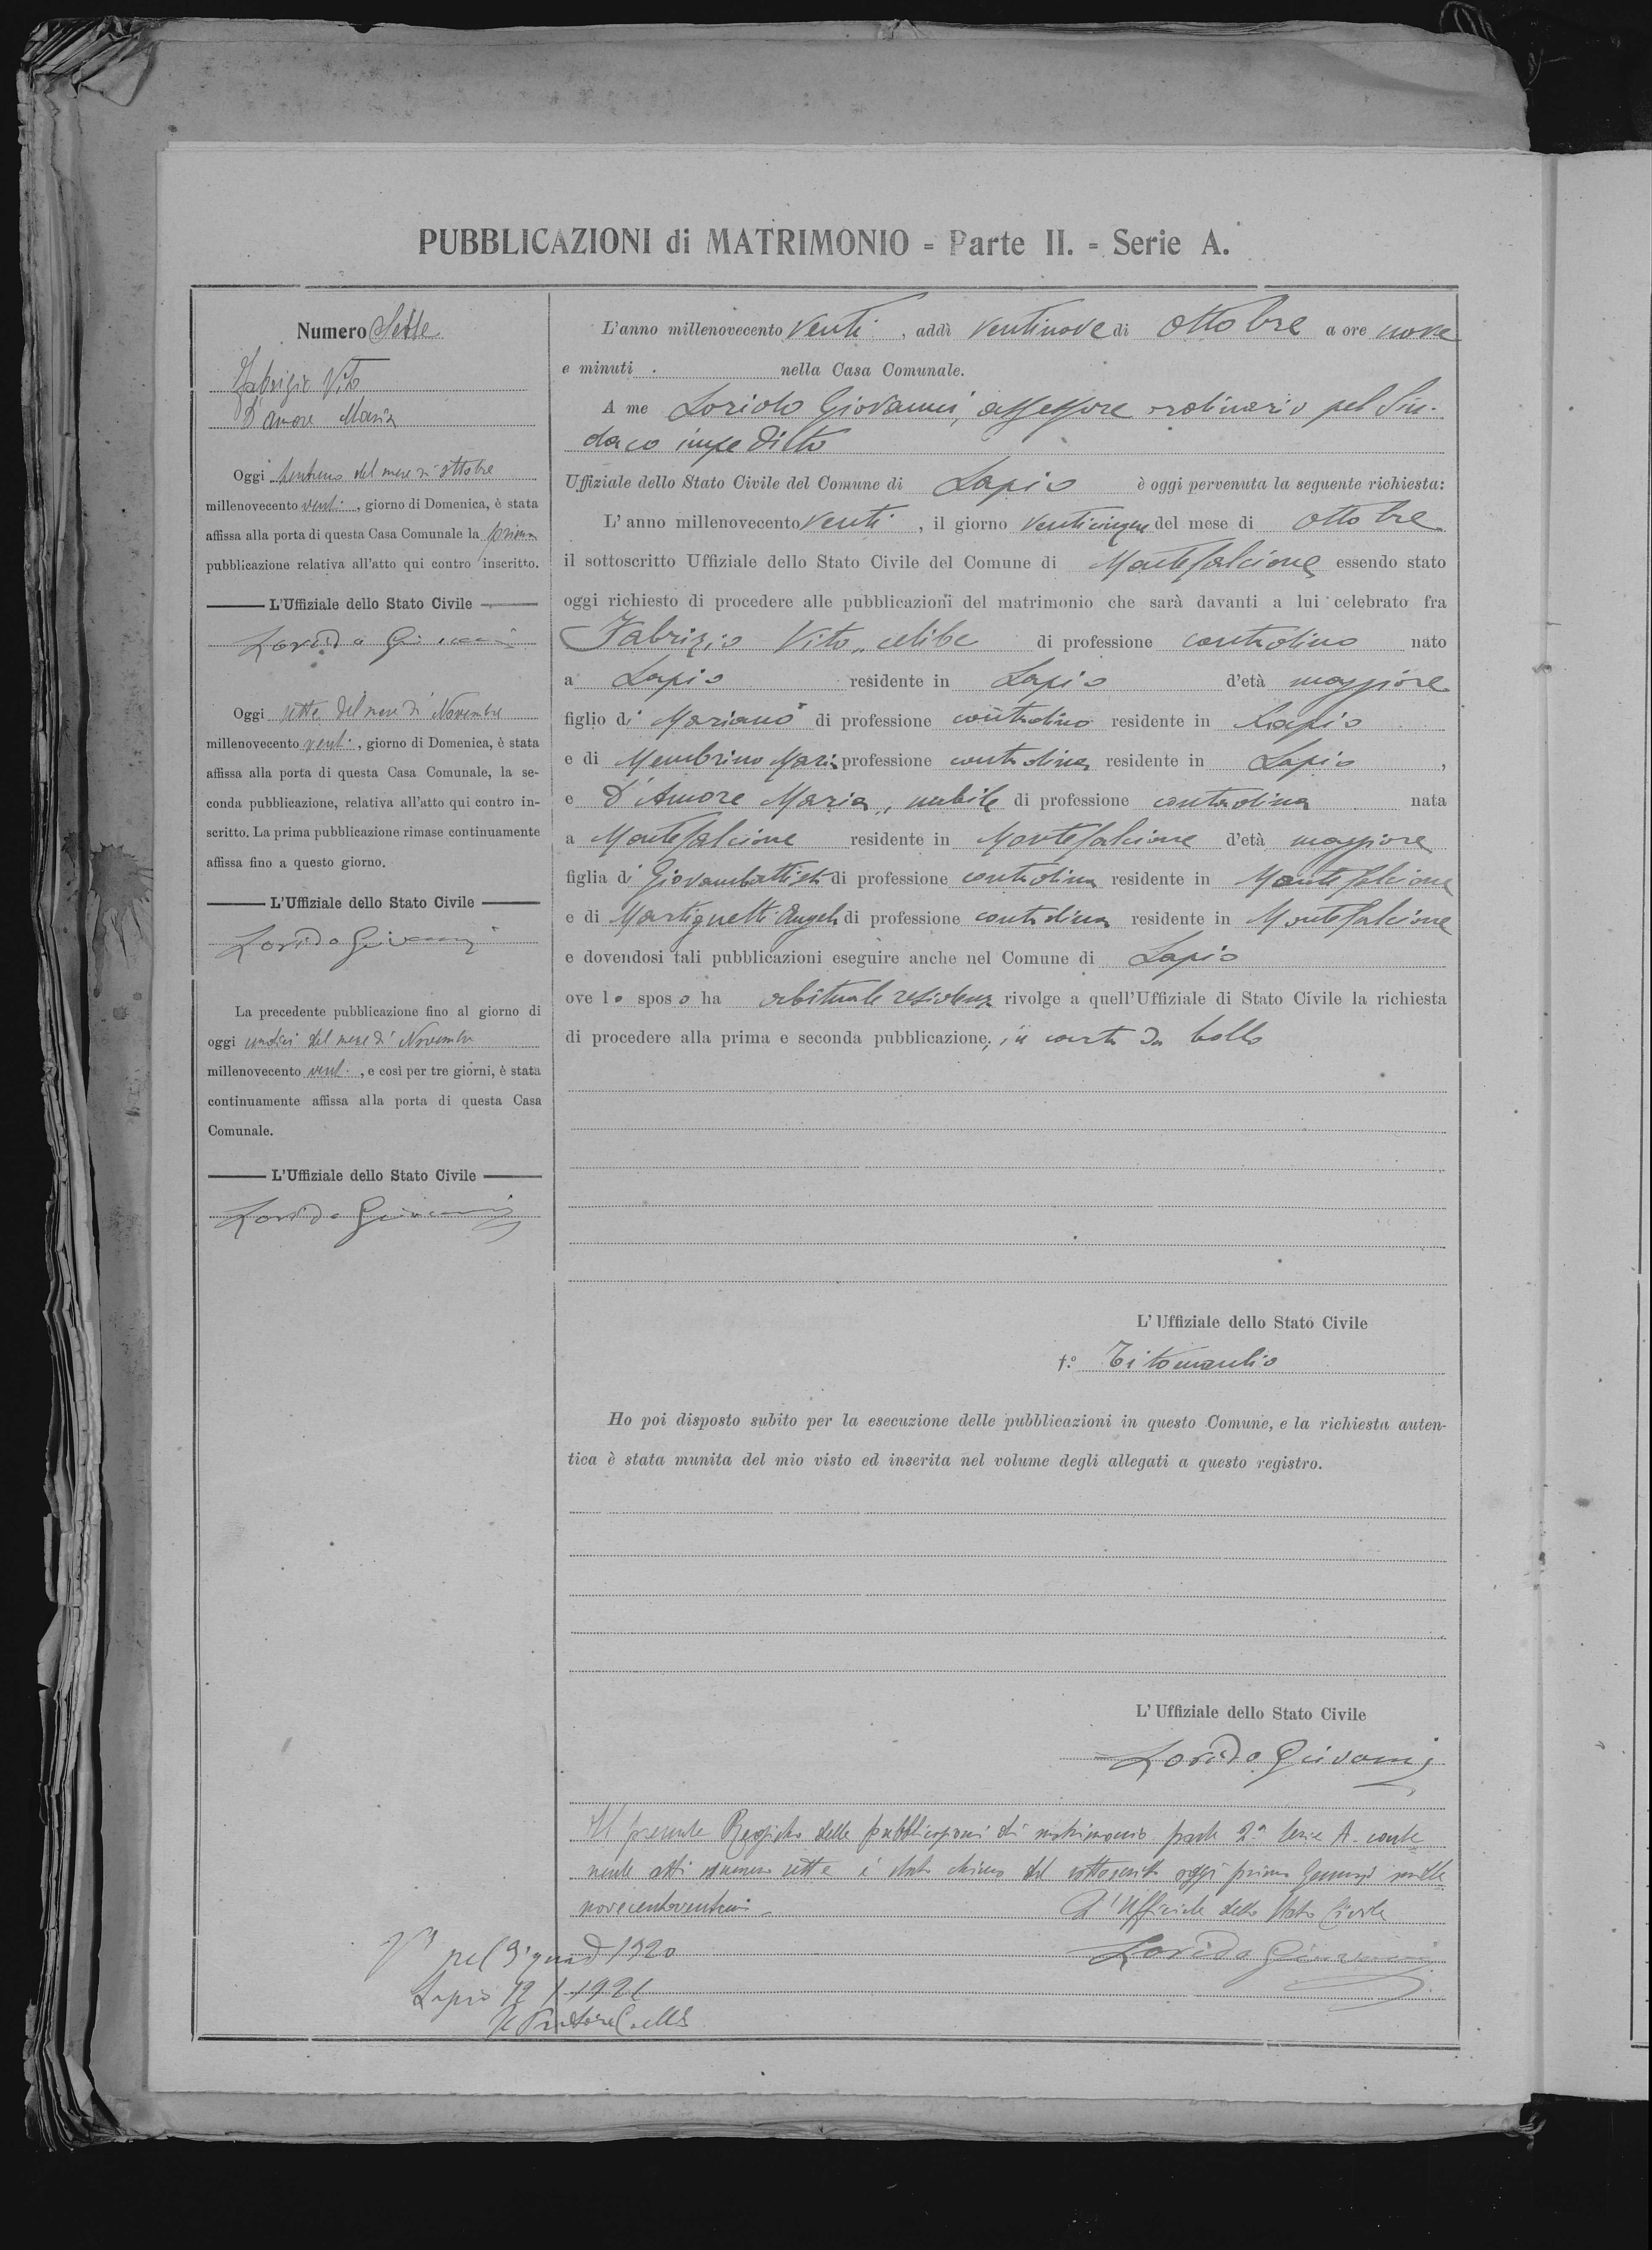 PUBBLICAZIONI di MATRIMONIO = Parte II. = Serie A.
Numero Sette
Fabrizio Vito
D'Amore Maria
Oggi trentuno del mese di ottobre
millenovecento venti, giorno di Domenica, è stata
affissa alla porta di questa Casa Comunale la prima
pubblicazione relativa all'atto qui contro inscritto.
L'Uffiziale dello Stato Civile
Lorido Giovanni
Oggi sette del mese di Novembre
millenovecento venti, giorno di Domenica, è stata
affissa alla porta di questa Casa Comunale, la se-
conda pubblicazione, relativa all'atto qui contro in-
scritto. La prima pubblicazione rimase continuamente
affissa fino a questo giorno.
L'Uffiziale dello Stato Civile
Lorido Giovanni
La precedente pubblicazione fino al giorno di
oggi undici del mese di Novembre
millenovecento venti, e così per tre giorni, è stata
continuamente affissa alla porta di questa Casa
Comunale.
L'Uffiziale dello Stato Civile
Lorido Giovanni
L'anno millenovecento venti, addì ventinove di ottobre a ore nove
e minuti . nella Casa Comunale.
A me Lorido Giovanni, assessore ordinario pel Sin-
daco impedito
Uffiziale dello Stato Civile del Comune di Lapio è oggi pervenuta la seguente richiesta:
L'anno millenovecento venti, il giorno venticinque del mese di ottobre
il sottoscritto Uffiziale dello Stato Civile del Comune di Montefalcione essendo stato
oggi richiesto di procedere alle pubblicazioni del matrimonio che sarà davanti a lui celebrato fra
Fabrizio Vito, celibe di professione contadino nato
a Lapio residente in Lapio d'età maggiore
figlio di Mariano di professione contadino residente in Lapio
e di Membrino Maria professione contadina residente in Lapio,
e D'Amore Maria, nubile di professione contadina nata
a Montefalcione residente in Montefalcione d'età maggiore
figlia di Giovambattista di professione contadina residente in Montefalcione
e di Martignetti Angela di professione contadina residente in Montefalcione
e dovendosi tali pubblicazioni eseguire anche nel Comune di Lapio
ove lo sposo ha abituale residenza rivolge a quell'Uffiziale di Stato Civile la richiesta
di procedere alla prima e seconda pubblicazione, in carta da bollo
L'Uffiziale dello Stato Civile
f.º Titomanlio
Ho poi disposto subito per la esecuzione delle pubblicazioni in questo Comune, e la richiesta auten-
tica è stata munita del mio visto ed inserita nel volume degli allegati a questo registro.
L'Uffiziale dello Stato Civile
Lorido Giovanni
Il presente Registro delle pubblicazioni di matrimonio parte 2ª serie A. conte
nente atti numero sette è stato chiuso dal sottoscritto oggi primo Gennaio mille
novecentoventuno
L'Ufficiale dello Stato Civile
Lorido Giovanni
Vº pel 3º quad 1920
Lapio 12 / 1921
Il Pretore